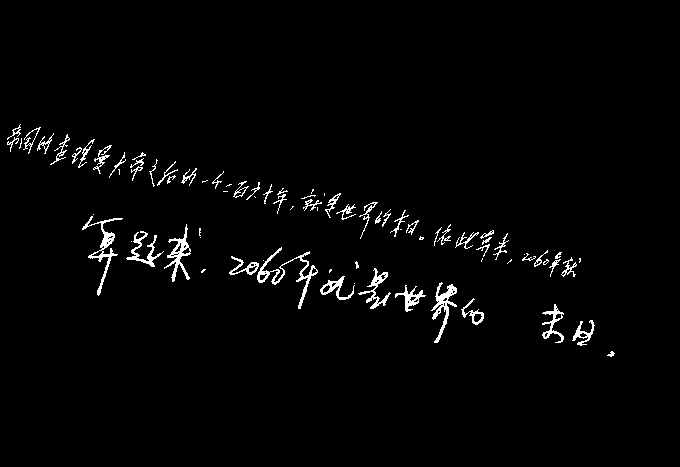 帝国的查理曼大帝之后的一千二百六十年，就是世界的末日。依此算来，2060年就
算起来，2060年就是世界的 末日。